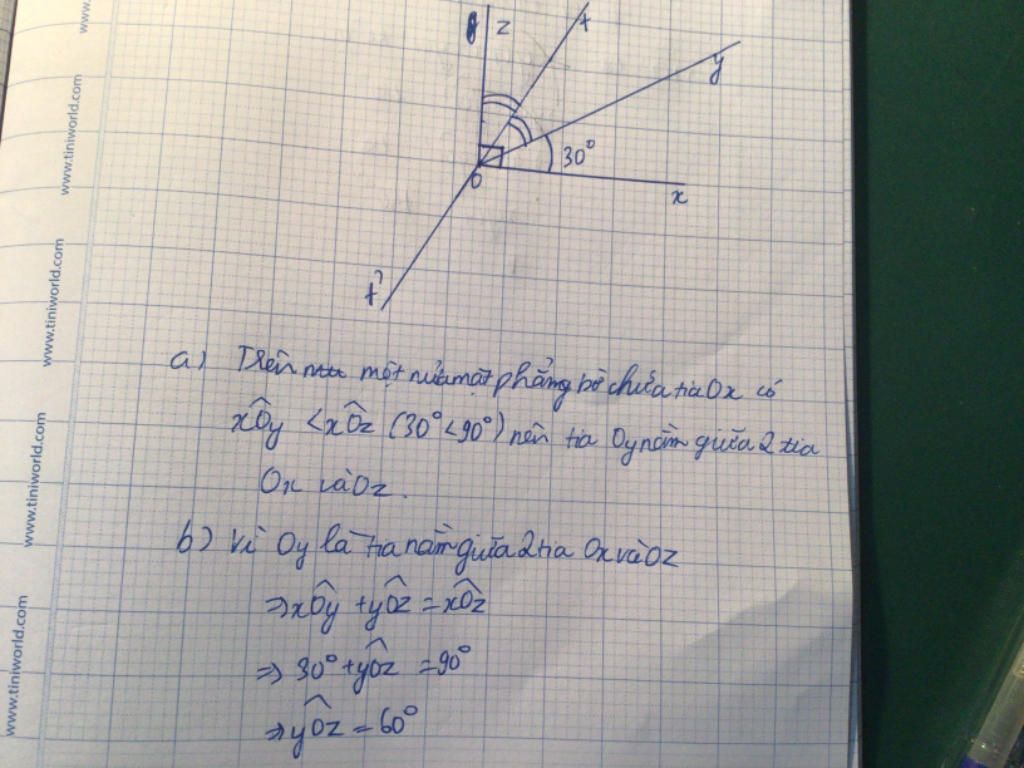 z
t
y
30°
O
x
t'
a) Trên một nửa mặt phẳng bờ chứa tia Ox có
xOy < xOz (30° < 90°) nên tia Oy nằm giữa 2 tia
Ox và Oz.
b) Vì Oy là tia nằm giữa 2 tia Ox và Oz
⇒ xOy + yOz = xOz
⇒ 30° + yOz = 90°
⇒ yOz = 60°
www.tiniworld.com
www.tiniworld.com
www.tiniworld.com
www.tiniworld.com
www.